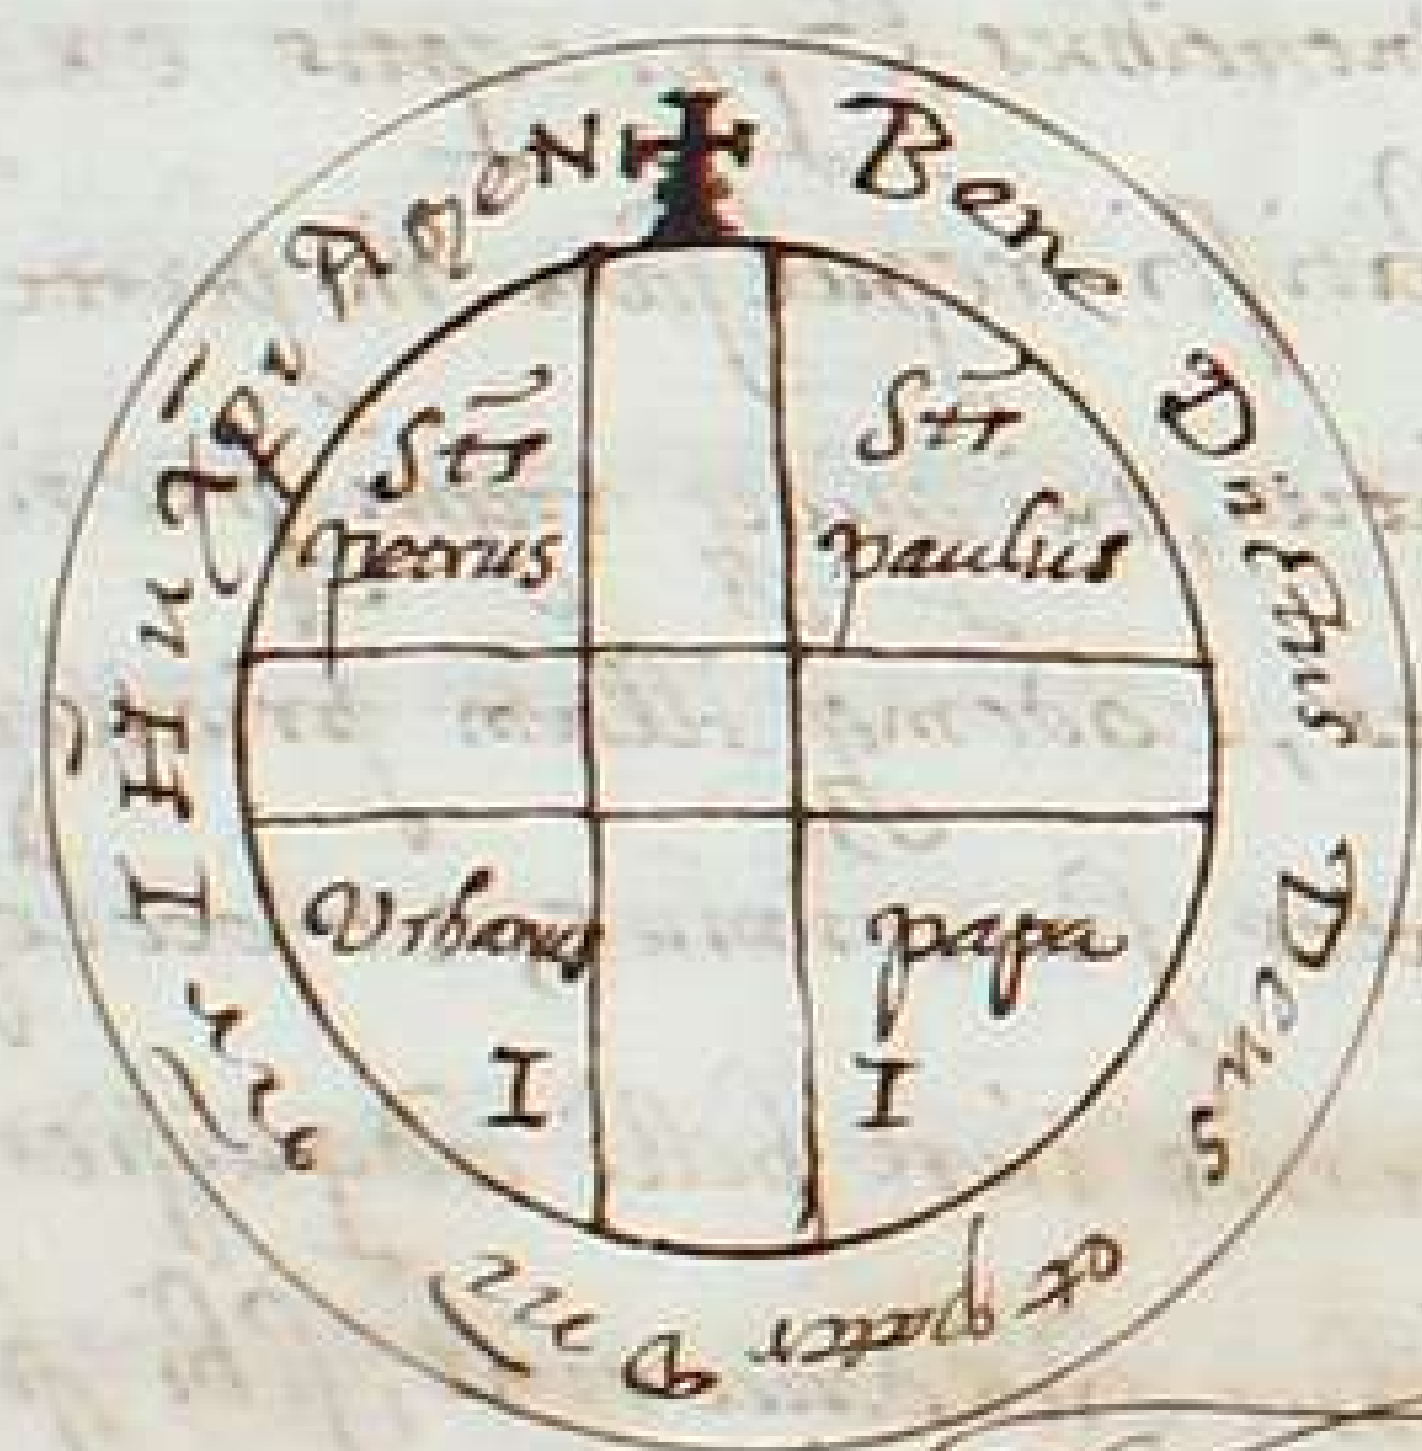 ✠ Bene Dictus Deus et pater Dni nri IHu Xpi AmeN
Stus petrus
Stus paulus
Vrbanus
papa
I I